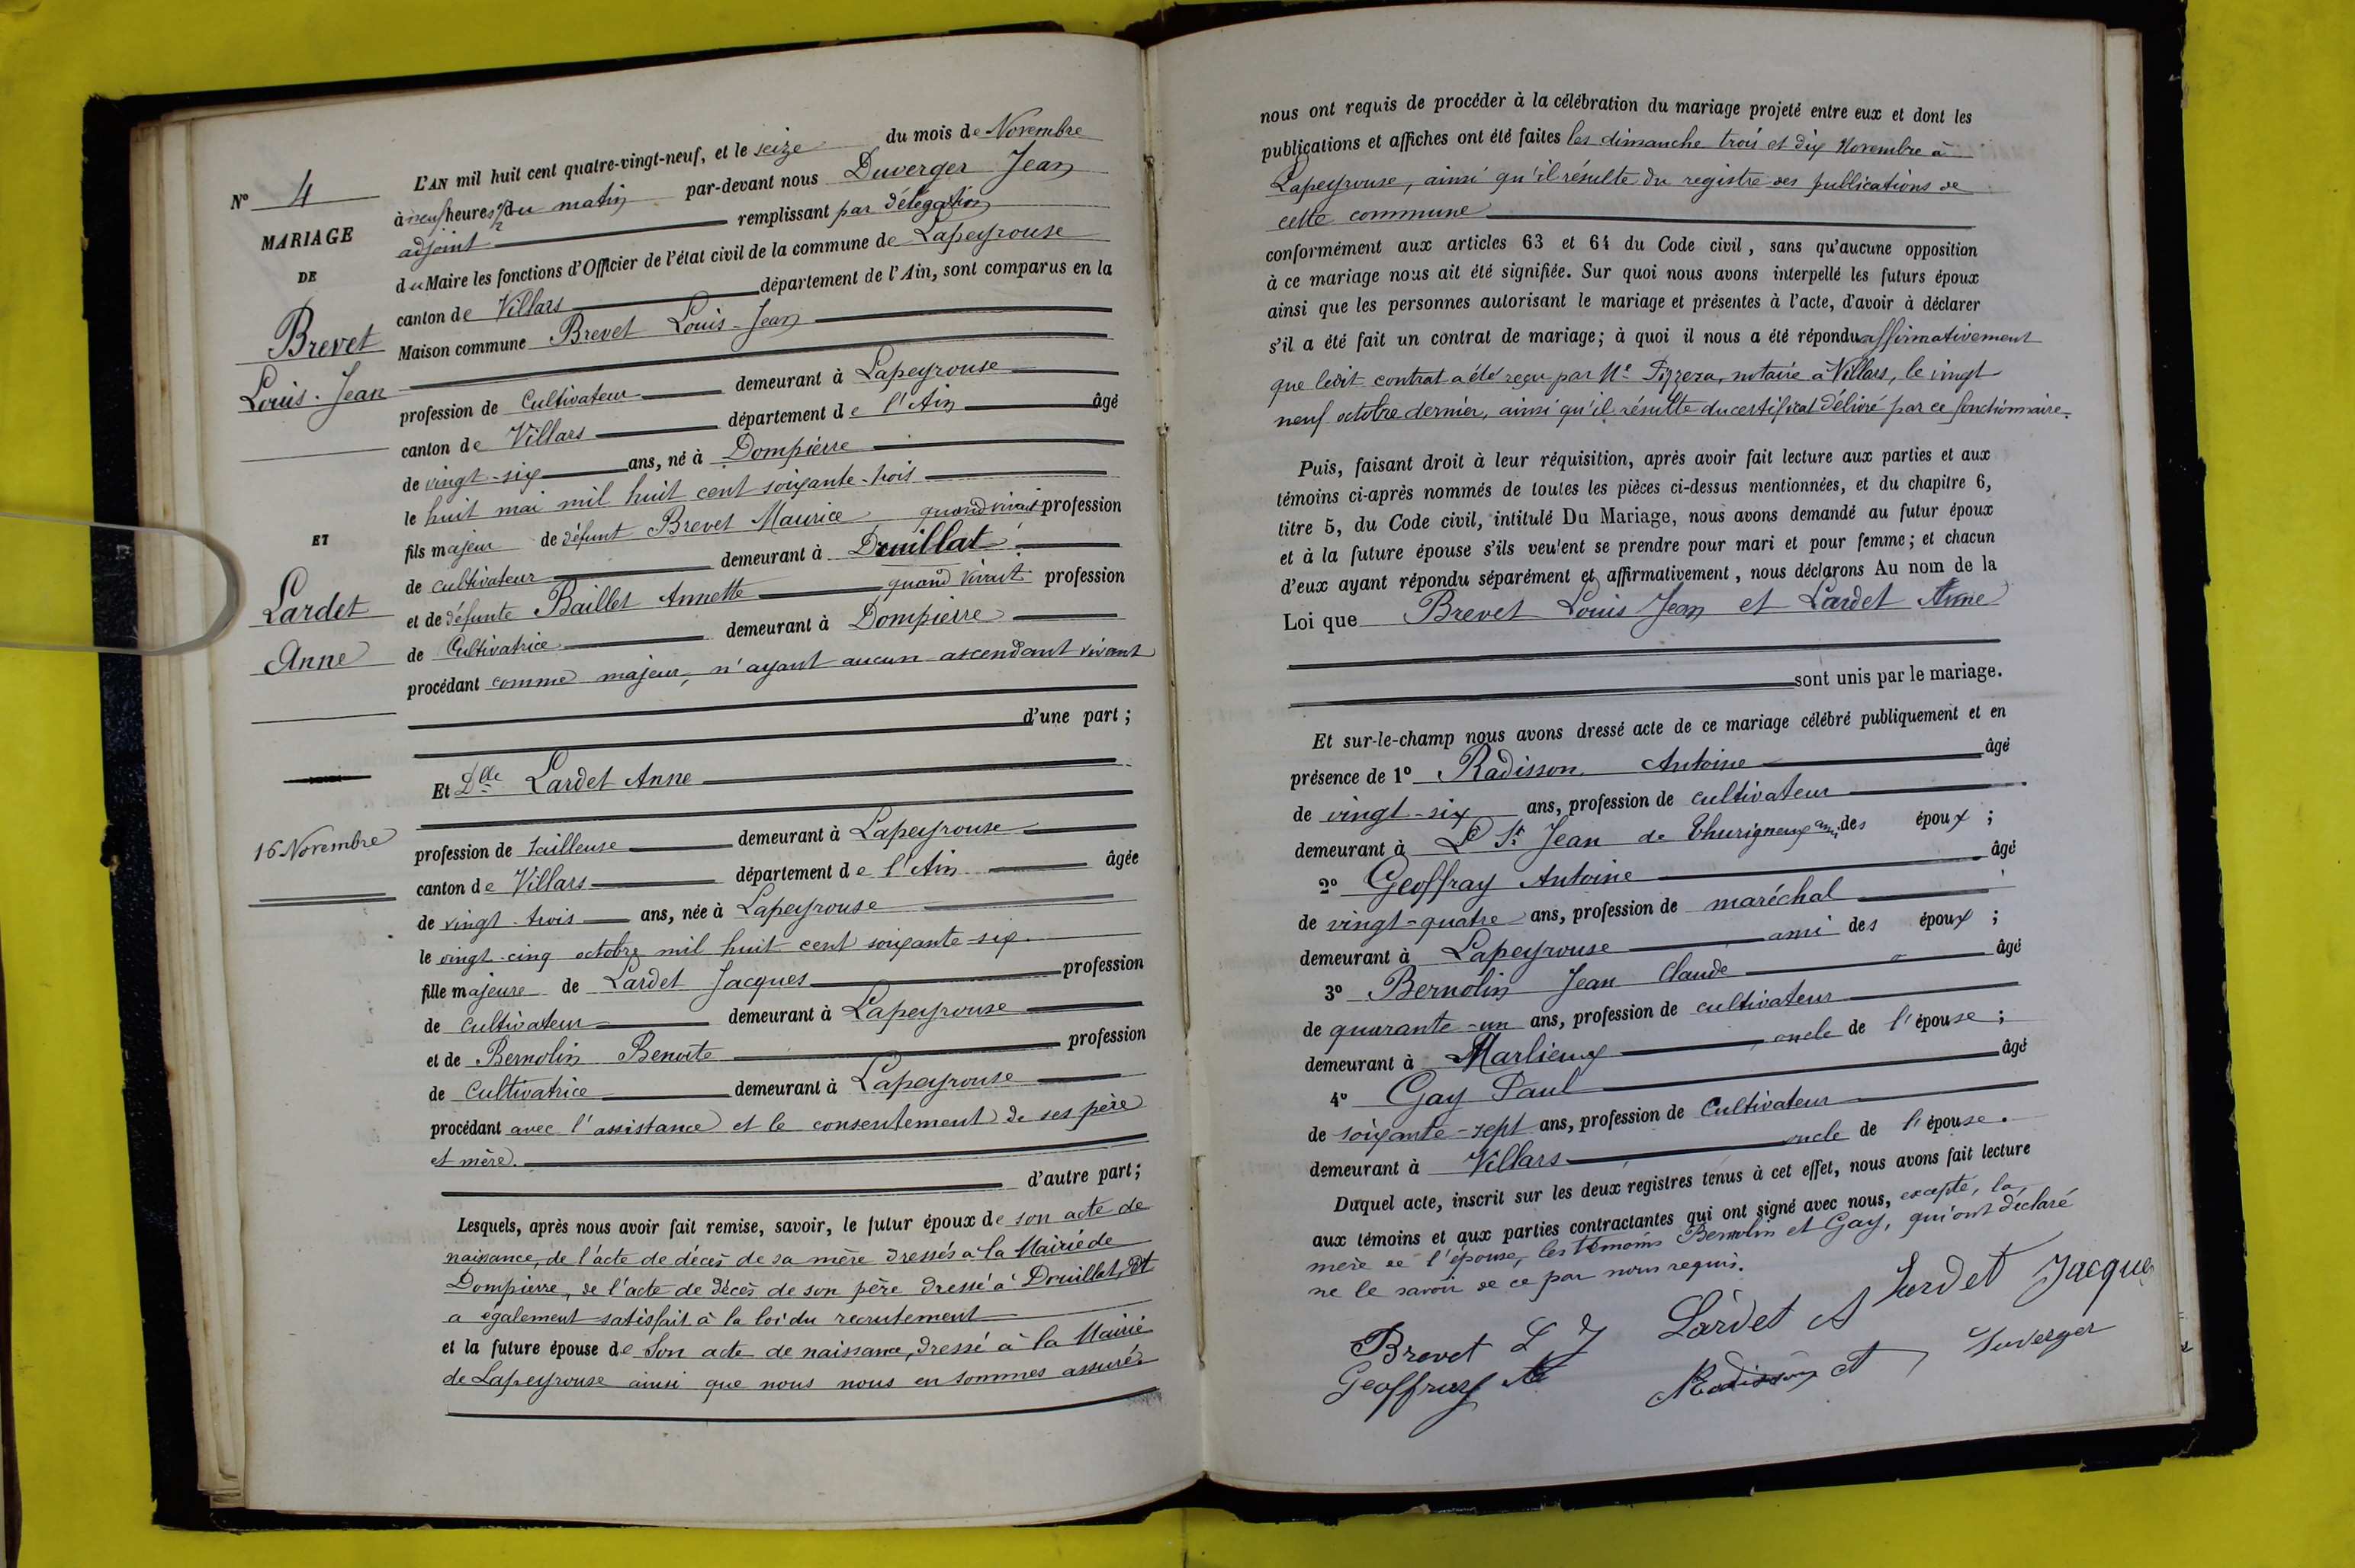 N° 4
MARIAGE
DE
Brevet
Louis-Jean
ET
Lardet
Anne
16 Novembre
L'AN mil huit cent quatre-vingt-neuf, et le seize du mois de Novembre
à neuf heures 1/2 du matin par-devant nous Duverger Jean
adjoint remplissant par délégation
du Maire les fonctions d'Officier de l'état civil de la commune de Lapeyrouse
canton de Villars département de l'Ain, sont comparus en la
Maison commune Brevet Louis-Jean
profession de Cultivateur demeurant à Lapeyrouse
canton de Villars département de l'Ain âgé
de vingt-six ans, né à Dompierre
le huit mai mil huit cent soixante-trois
fils majeur de défunt Brevet Maurice quand vivait profession
de cultivateur demeurant à Druillat
et de défunte Baillet Annette quand vivait profession
de Cultivatrice demeurant à Dompierre
procédant comme majeur, n'ayant aucun ascendant vivant
d'une part ;
Et Dlle Lardet Anne
profession de tailleuse demeurant à Lapeyrouse
canton de Villars département de l'Ain âgée
de vingt-trois ans, née à Lapeyrouse
le vingt-cinq octobre mil huit cent soixante-six.
fille majeure de Lardet Jacques profession
de cultivateur demeurant à Lapeyrouse
et de Bernolin Benoite profession
de Cultivatrice demeurant à Lapeyrouse
procédant avec l'assistance et le consentement de ses père
et mère.
d'autre part ;
Lesquels, après nous avoir fait remise, savoir, le futur époux de son acte de
naissance, de l'acte de décès de sa mère dressés à la Mairie de
Dompierre, de l'acte de décès de son père dressé à Druillat, et
a également satisfait à la loi du recrutement
et la future épouse de son acte de naissance, dressé à la Mairie
de Lapeyrouse ainsi que nous nous en sommes assurés
nous ont requis de procéder à la célébration du mariage projeté entre eux et dont les
publications et affiches ont été faites les dimanche trois et dix Novembre à
Lapeyrouse, ainsi qu'il résulte du registre des publications de
cette commune
conformément aux articles 63 et 64 du Code civil, sans qu'aucune opposition
à ce mariage nous ait été signifiée. Sur quoi nous avons interpellé les futurs époux
ainsi que les personnes autorisant le mariage et présentes à l'acte, d'avoir à déclarer
s'il a été fait un contrat de mariage ; à quoi il nous a été répondu affirmativement
que ledit contrat a été reçu par Me Pizzera, notaire à Villars, le vingt
neuf octobre dernier, ainsi qu'il résulte du certificat délivré par ce fonctionnaire.
Puis, faisant droit à leur réquisition, après avoir fait lecture aux parties et aux
témoins ci-après nommés de toutes les pièces ci-dessus mentionnées, et du chapitre 6,
titre 5, du Code civil, intitulé Du Mariage, nous avons demandé au futur époux
et à la future épouse s'ils veulent se prendre pour mari et pour femme ; et chacun
d'eux ayant répondu séparément et affirmativement, nous déclarons Au nom de la
Loi que Brevet Louis Jean et Lardet Anne
sont unis par le mariage.
Et sur-le-champ nous avons dressé acte de ce mariage célébré publiquement et en
présence de 1° Radisson Antoine âgé
de vingt-six ans, profession de cultivateur
demeurant à St Jean de Thurigneux ami des époux ;
2° Geoffray Antoine âgé
de vingt-quatre ans, profession de maréchal
demeurant à Lapeyrouse ami des époux ;
3° Bernolin Jean Claude âgé
de quarante-un ans, profession de cultivateur
demeurant à Marlieux oncle de l'épouse ;
4° Gay Paul âgé
de soixante-sept ans, profession de Cultivateur
demeurant à Villars oncle de l'épouse.
Duquel acte, inscrit sur les deux registres tenus à cet effet, nous avons fait lecture
aux témoins et aux parties contractantes qui ont signé avec nous, excepté, la
mère de l'épouse, les témoins Bernolin et Gay, qui ont déclaré
ne le savoir de ce par nous requis.
Brevet L J Lardet A Lardet Jacques
Geoffray A Radisson A Duverger